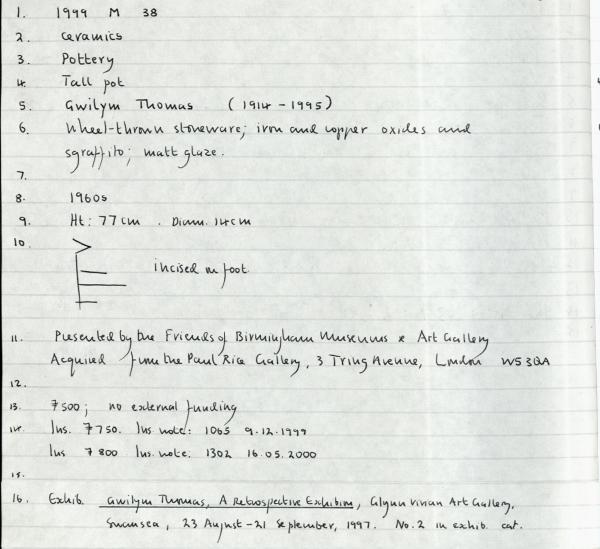 1. 1999 M 38
2. Ceramics
3. Pottery
4. Tall pot
5. Gwilym Thomas (1914-1995)
6. Wheel-thrown stoneware; iron and copper oxides and
sgraffito; matt glaze.
7.
8. 1960s
9. Ht: 77cm. Diam. 14cm
10. incised on foot.
11. Presented by the Friends of Birmingham Museums & Art Gallery
Acquired from the Paul Rice Gallery, 3 Tring Avenue, London W5 3QA
12.
13. £500; no external funding
14. Ins. £750. Ins note: 1065 9.12.1999
Ins £800 Ins. note: 1302 16.05.2000
15.
16. Exhib. Gwilym Thomas, A Retrospective Exhibition, Glynn Vivian Art Gallery,
Swansea, 23 August-21 September, 1997. No.2 in exhib. cat.